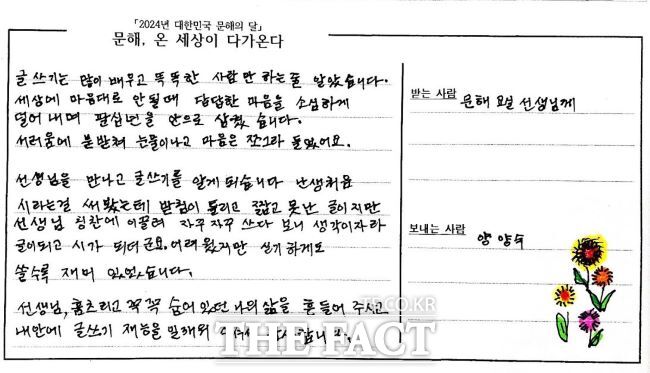 「2024년 대한민국 문해의 달」
문해, 온 세상이 다가온다
글쓰기는 많이 배우고 똑똑한 사람만 하는줄 알았습니다.
세상에 마음대로 안될때 답답한 마음을 소심하게
덜어내며 팔십년을 안으로 삼켰습니다.
서러움에 북받쳐 눈물이나고 마음은 쪼그라 들었어요.
선생님을 만나고 글쓰기를 알게 되습니다 난생처음
시라는걸 써봤는데 받침이 틀리고 짧고 못난 글이지만
선생님 칭찬에 이끌려 자꾸자꾸 쓰다 보니 생각이자라
글이되고 시가 되더군요. 어려웠지만 신기하게도
쓸수록 재미 있었습니다.
선생님, 움츠리고 꼭꼭 숨어있던 나의 삶을 흔들어 주시고
내안에 글쓰기 재능을 일깨워
받는 사람
문해 교실 선생님께
보내는 사람
양양숙
TF.CO.KR
THE FACT